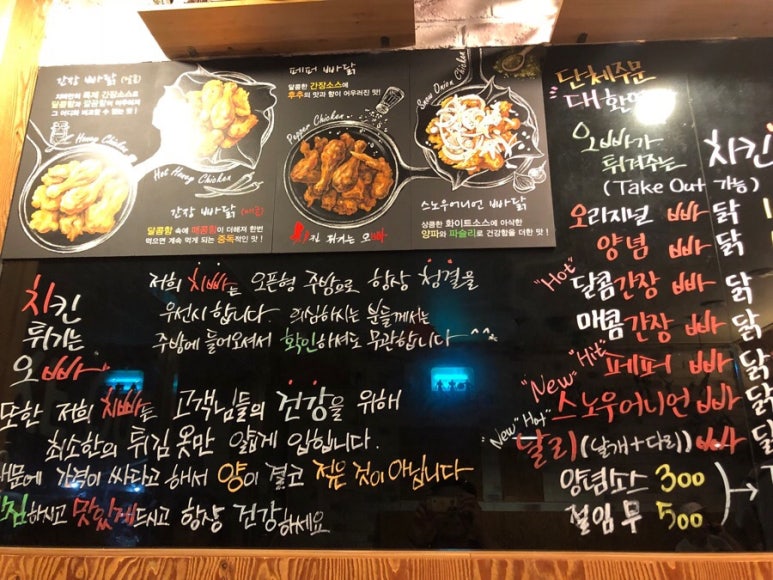 간장 빠닭 (달콤)
특제 간장소스로
달콤함과 짭조름함이
Honey Chicken
Hot Honey Chicken
간장 빠닭 (매콤)
달콤함 속에 매콤함이 더해져 한번
먹으면 계속 먹게 되는 중독적인 맛 !
페퍼 빠닭
달콤한 간장소스에
후추의 맛과 향이 어우러진 맛!
Pepper Chicken
치킨 튀기는 오빠
Snow Onion Chicken
스노우어니언 빠닭
상큼한 화이트소스에 아삭한
양파와 파슬리로 건강함을 더한 맛 !
치킨
튀기는
오빠
저희 치빠는 오픈형 주방으로 항상 청결을
우선시 합니다 의심하시는 분들께서는
주방에 들어오셔서 확인하셔도 무관합니다 ^^
또한 저희 치빠는 고객님들의 건강을 위해
최소한의 튀김 옷만 얇게 입힙니다.
때문에 가격이 싸다고 해서 양이 결코 적은 것이 아닙니다
하시고 맛있게 드시고 항상 건강하세요
단체주문
대환영
오빠가
튀겨주는 치킨
(Take Out 가능)
오리지널 빠닭
양념 빠닭
"Hot" 달콤간장 빠닭
매콤간장 빠닭
"New" "Hit" 페퍼 빠닭
스노우어니언 빠닭
"New" "Hot" 날리(날개+다리) 빠닭
양념소스 300
절임무 500